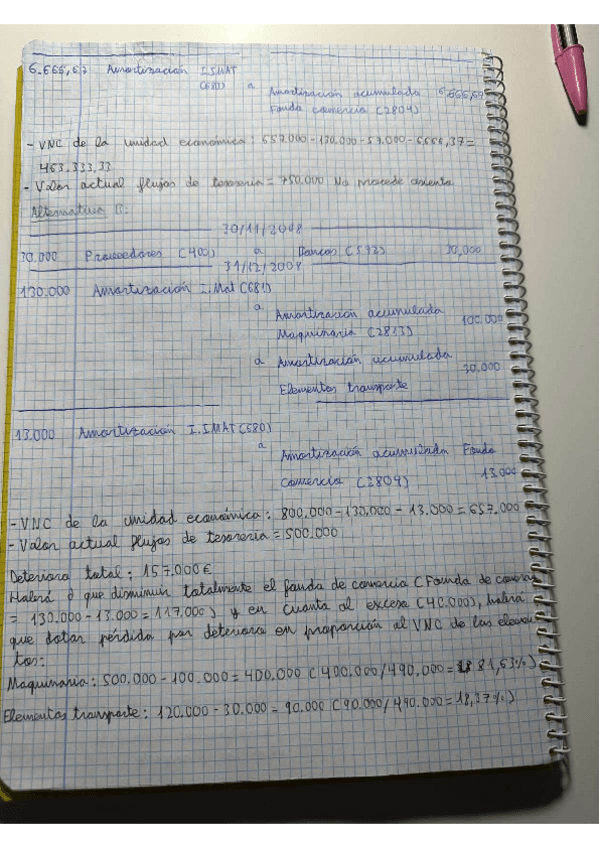 6.666,67 Amortización I.SMAT
(680) a Amortización acumulada 6.666,67
Fondo comercio (2804)
- VNC de la unidad económica: 657.000-130.000-57.000-6.666,37=
463.333,33
- Valor actual flujos de tesorería = 750.000 No procede asiento
Alternativa B:
30/11/2008
30.000 Proveedores (400) a Bancos (572) 30.000
31/12/2008
130.000 Amortización I.Mat (681)
a Amortización acumulada
Maquinaria (2813) 100.000
a Amortización acumulada
Elementos transporte 30.000
13.000 Amortización I.SMAT (680)
a Amortización acumulada Fondo
Comercio (2804) 13.000
- VNC de la unidad económica: 800.000-130.000-13.000=657.000
- Valor actual flujos de tesorería = 500.000
Deterioro total: 157.000€
Habrá que disminuir totalmente el fondo de comercio (Fondo de comercio
= 130.000-13.000=117.000) y en cuanto al exceso (40.000), habrá
que dotar pérdida por deterioro en proporción al VNC de los elemen
tos:
Maquinaria: 500.000-100.000=400.000 (400.000/490.000=81,63%)
Elementos transporte: 120.000-30.000=90.000 (90.000/490.000=18,37%)